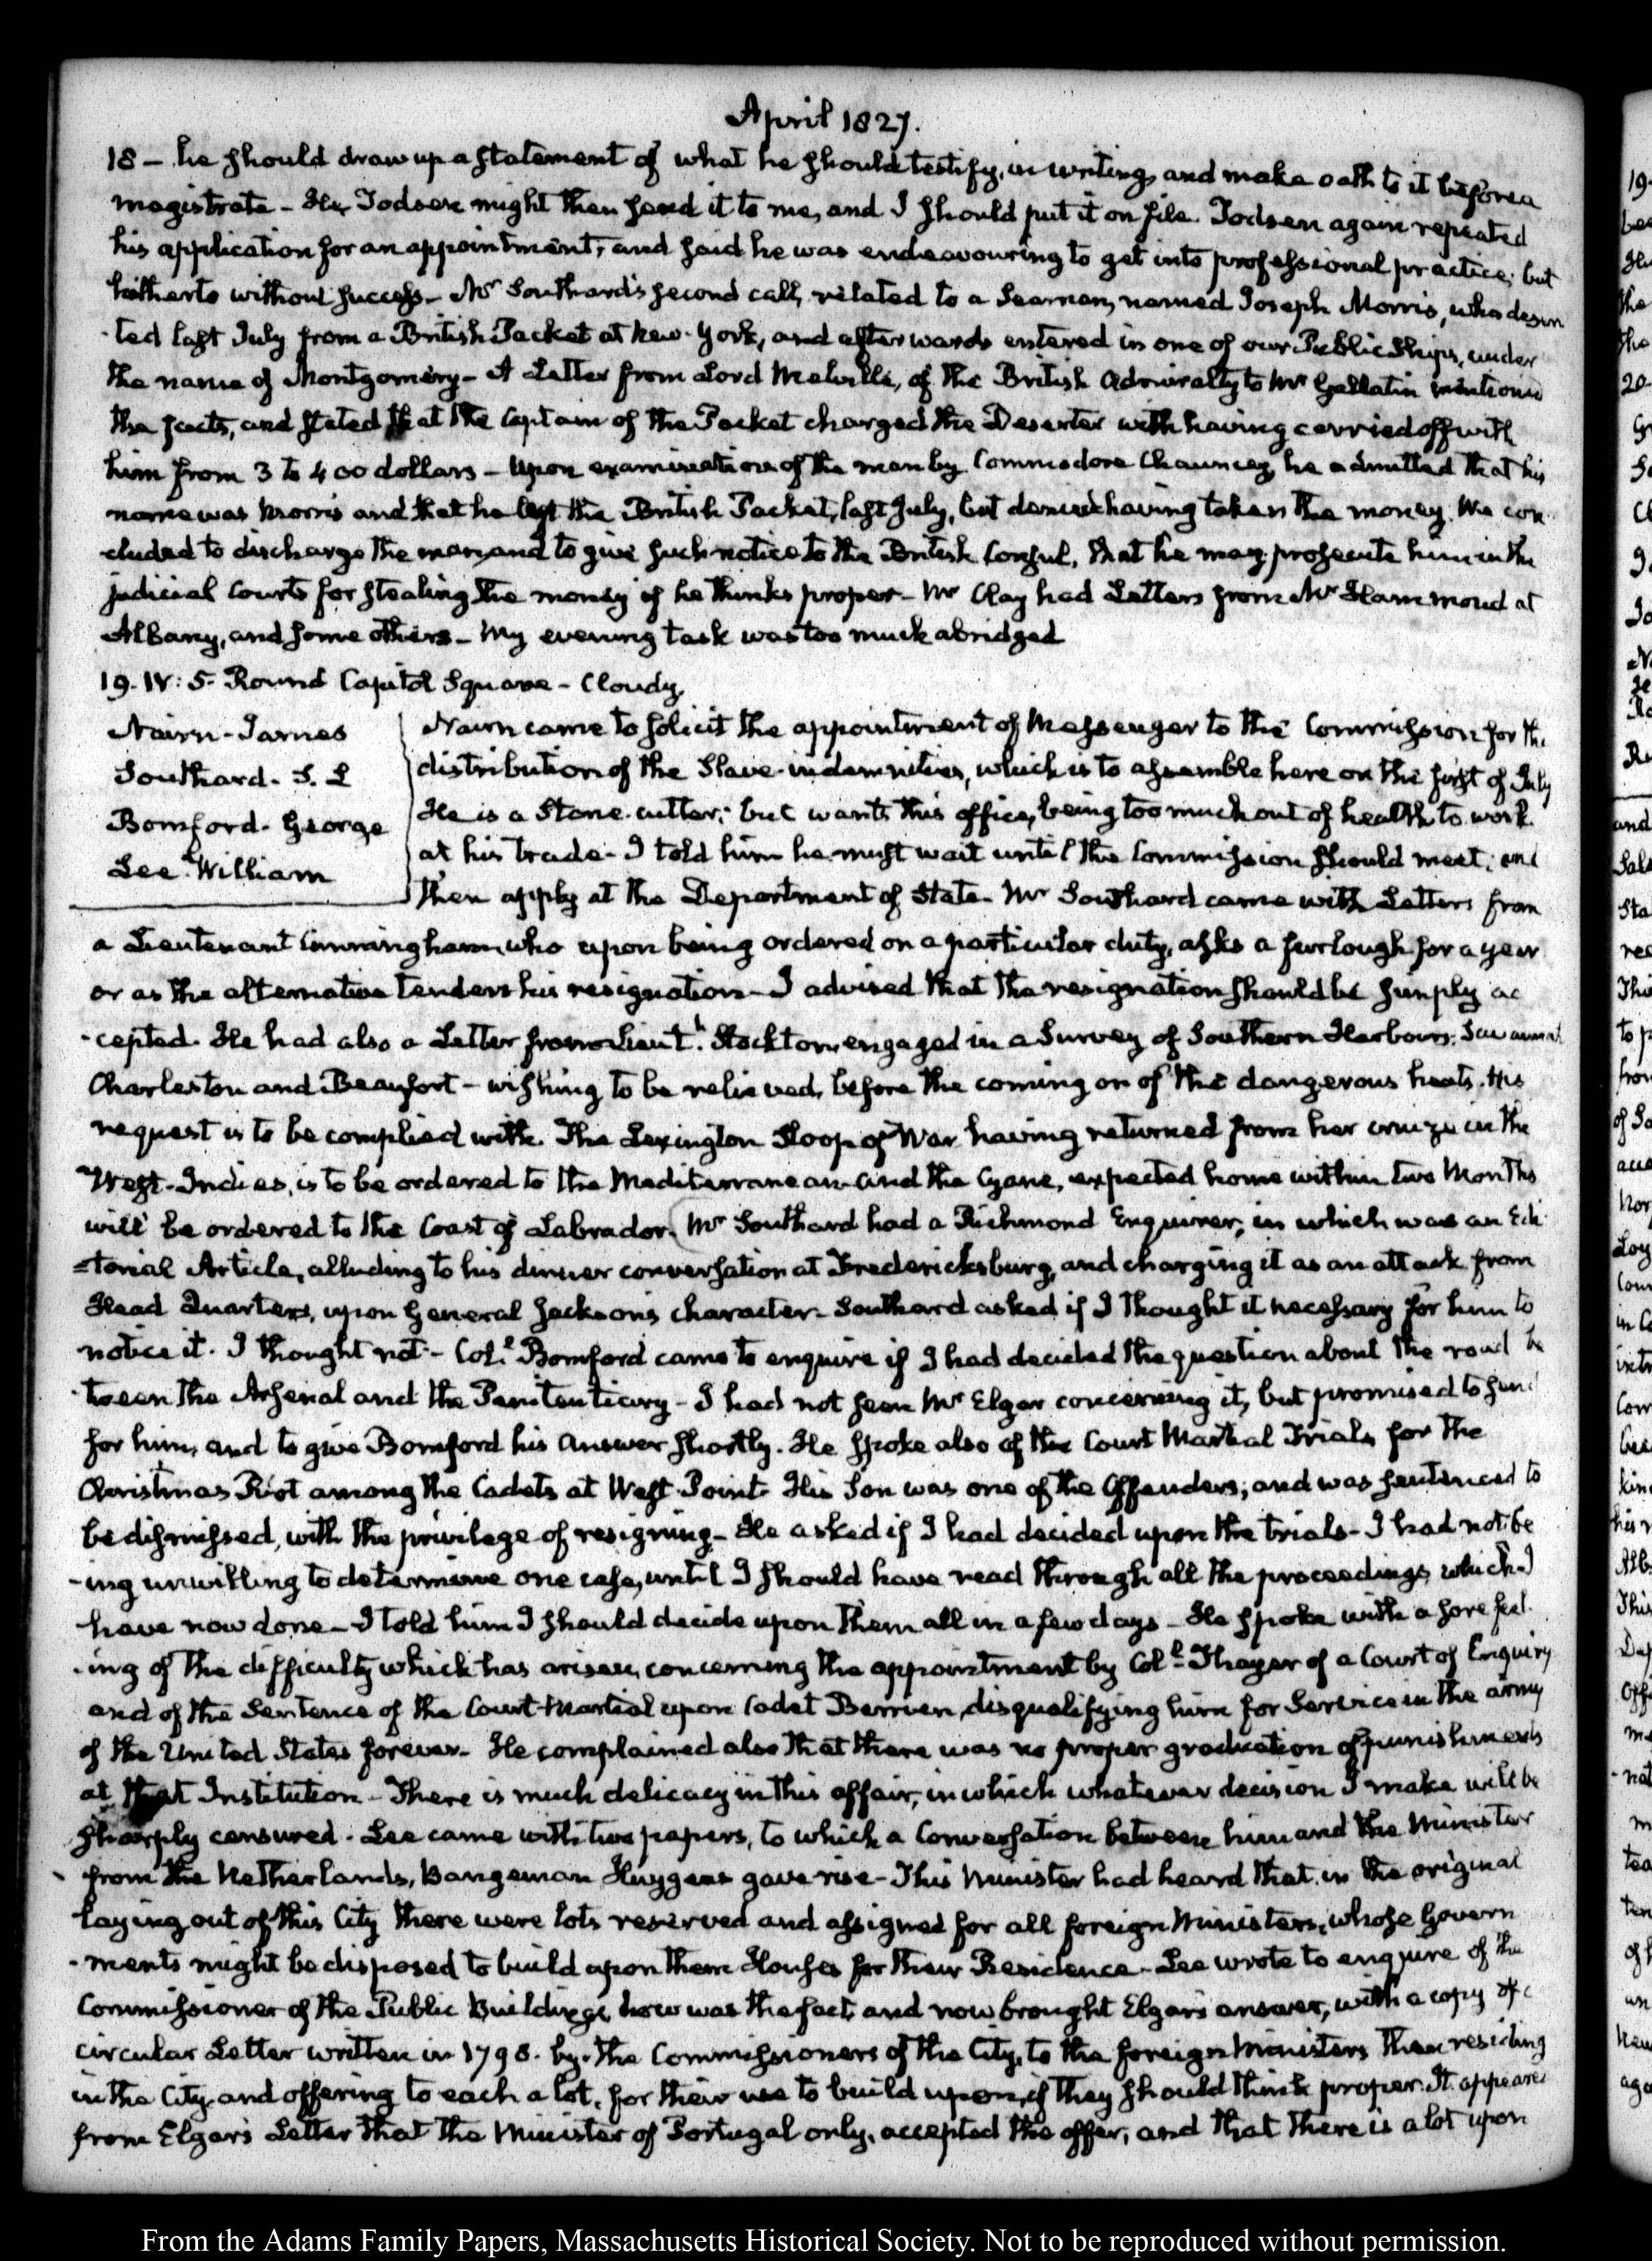 April 1827.
18 – he should draw up a statement of what he should testify, in writing, and make oath to it before a
magistrate – He, Todsen might then send it to me, and I should put it on file. Todsen again repeated
his application for an appointment, and said he was endeavouring to get into professional practice; but
hitherto without success – Mr Southard's second call, related to a Seaman, named Joseph Morris, who deser
-ted last July from a British Packet at New-York, and afterwards entered in one of our Public Ships, under
the name of Montgomery – A Letter from Lord Melville, of the British Admiralty to Mr Gallatin mentioned
the facts, and stated that the Captain of the Packet charged the Deserter with having carried off with
him from 3 to 400 dollars – Upon examination of the man by Commodore Chauncey, he admitted that his
name was Morris and that he left the British Packet, last July, but denied having taken the money. We con
-cluded to discharge the man, and to give such notice to the British Consul, that he may prosecute him in the
judicial Courts for stealing the money if he thinks proper – Mr Clay had Letters from Mr Hammond at
Albany, and some others – My evening task was too much abridged
19. IV: 5. Round Capitol Square – Cloudy.
Nairn – James
Southard. S. L
Bomford. George
Lee. William
Nairn came to solicit the appointment of Messenger to the Commission for the
distribution of the Slave-indemnities, which is to assemble here on the first of July
He is a Stone-cutter; but wants this office, being too much out of health to work
at his trade – I told him he must wait until the Commission should meet; and
then apply at the Department of State – Mr Southard came with Letters from
a Lieutenant Cunningham, who upon being ordered on a particular duty, asks a furlough for a year
or as the alternative tenders his resignation – I advised that the resignation should be simply ac
-cepted. He had also a Letter from Lieutt. Stockton, engaged in a Survey of Southern Harbours. Savannah
Charleston and Beaufort – wishing to be relieved, before the coming on of the dangerous heats. His
request is to be complied with. The Lexington Sloop of War having returned from her cruize in the
West-Indies, is to be ordered to the Mediterranean and the Cyane, expected home within two Months
will be ordered to the Coast of Labrador. Mr Southard had a Richmond Enquirer, in which was an Edi
-torial Article, alluding to his dinner conversation at Fredericksburg, and charging it as an attack from
Head Quarters, upon General Jackson's character – Southard asked if I thought it necessary for him to
notice it. I thought not – Coll. Bomford came to enquire if I had decided the question about the road be
-tween the Arsenal and the Penitentiary – I had not seen Mr Elgar concerning it, but promised to send
for him, and to give Bomford his Answer shortly. He spoke also of the Court Martial Trials for the
Christmas Riot among the Cadets at West-Point. His Son was one of the Offenders; and was sentenced to
be dismissed, with the privilege of resigning – He asked if I had decided upon the trials – I had not be
-ing unwilling to determine one case, until I should have read through all the proceedings which I
have now done – I told him I should decide upon them all in a few days – He spoke with a sore feel
-ing of the difficulty which has arisen, concerning the appointment by Coll. Thayer of a Court of Enquiry
and of the Sentence of the Court-Martial upon Cadet Berrien, disqualifying him for Service in the army
of the United States forever – He complained also that there was no proper graduation of punishments
at that Institution – There is much delicacy in this affair, in which whatever decision I make will be
sharply censured. Lee came with two papers, to which a Conversation between him and the Minister
from the Netherlands, Bangeman Huygens gave rise – This Minister had heard that in the original
laying out of this City there were lots reserved and assigned for all foreign Ministers, whose Govern
-ments might be disposed to build upon them Houses for their Residence – Lee wrote to enquire of the
Commissioner of the Public Buildings, how was the fact, and now brought Elgar's answer, with a copy of a
circular Letter written in 1798. by the Commissioners of the City, to the foreign Ministers then residing
in the City, and offering to each a lot, for their use to build upon, if they should think proper. It appeared
from Elgar's Letter that the Minister of Portugal only, accepted the offer, and that there is a lot upon
From the Adams Family Papers, Massachusetts Historical Society. Not to be reproduced without permission.